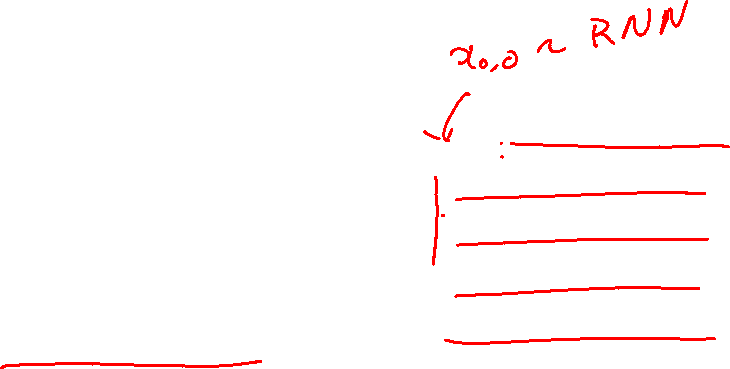 x₀,₀ ~ RNN